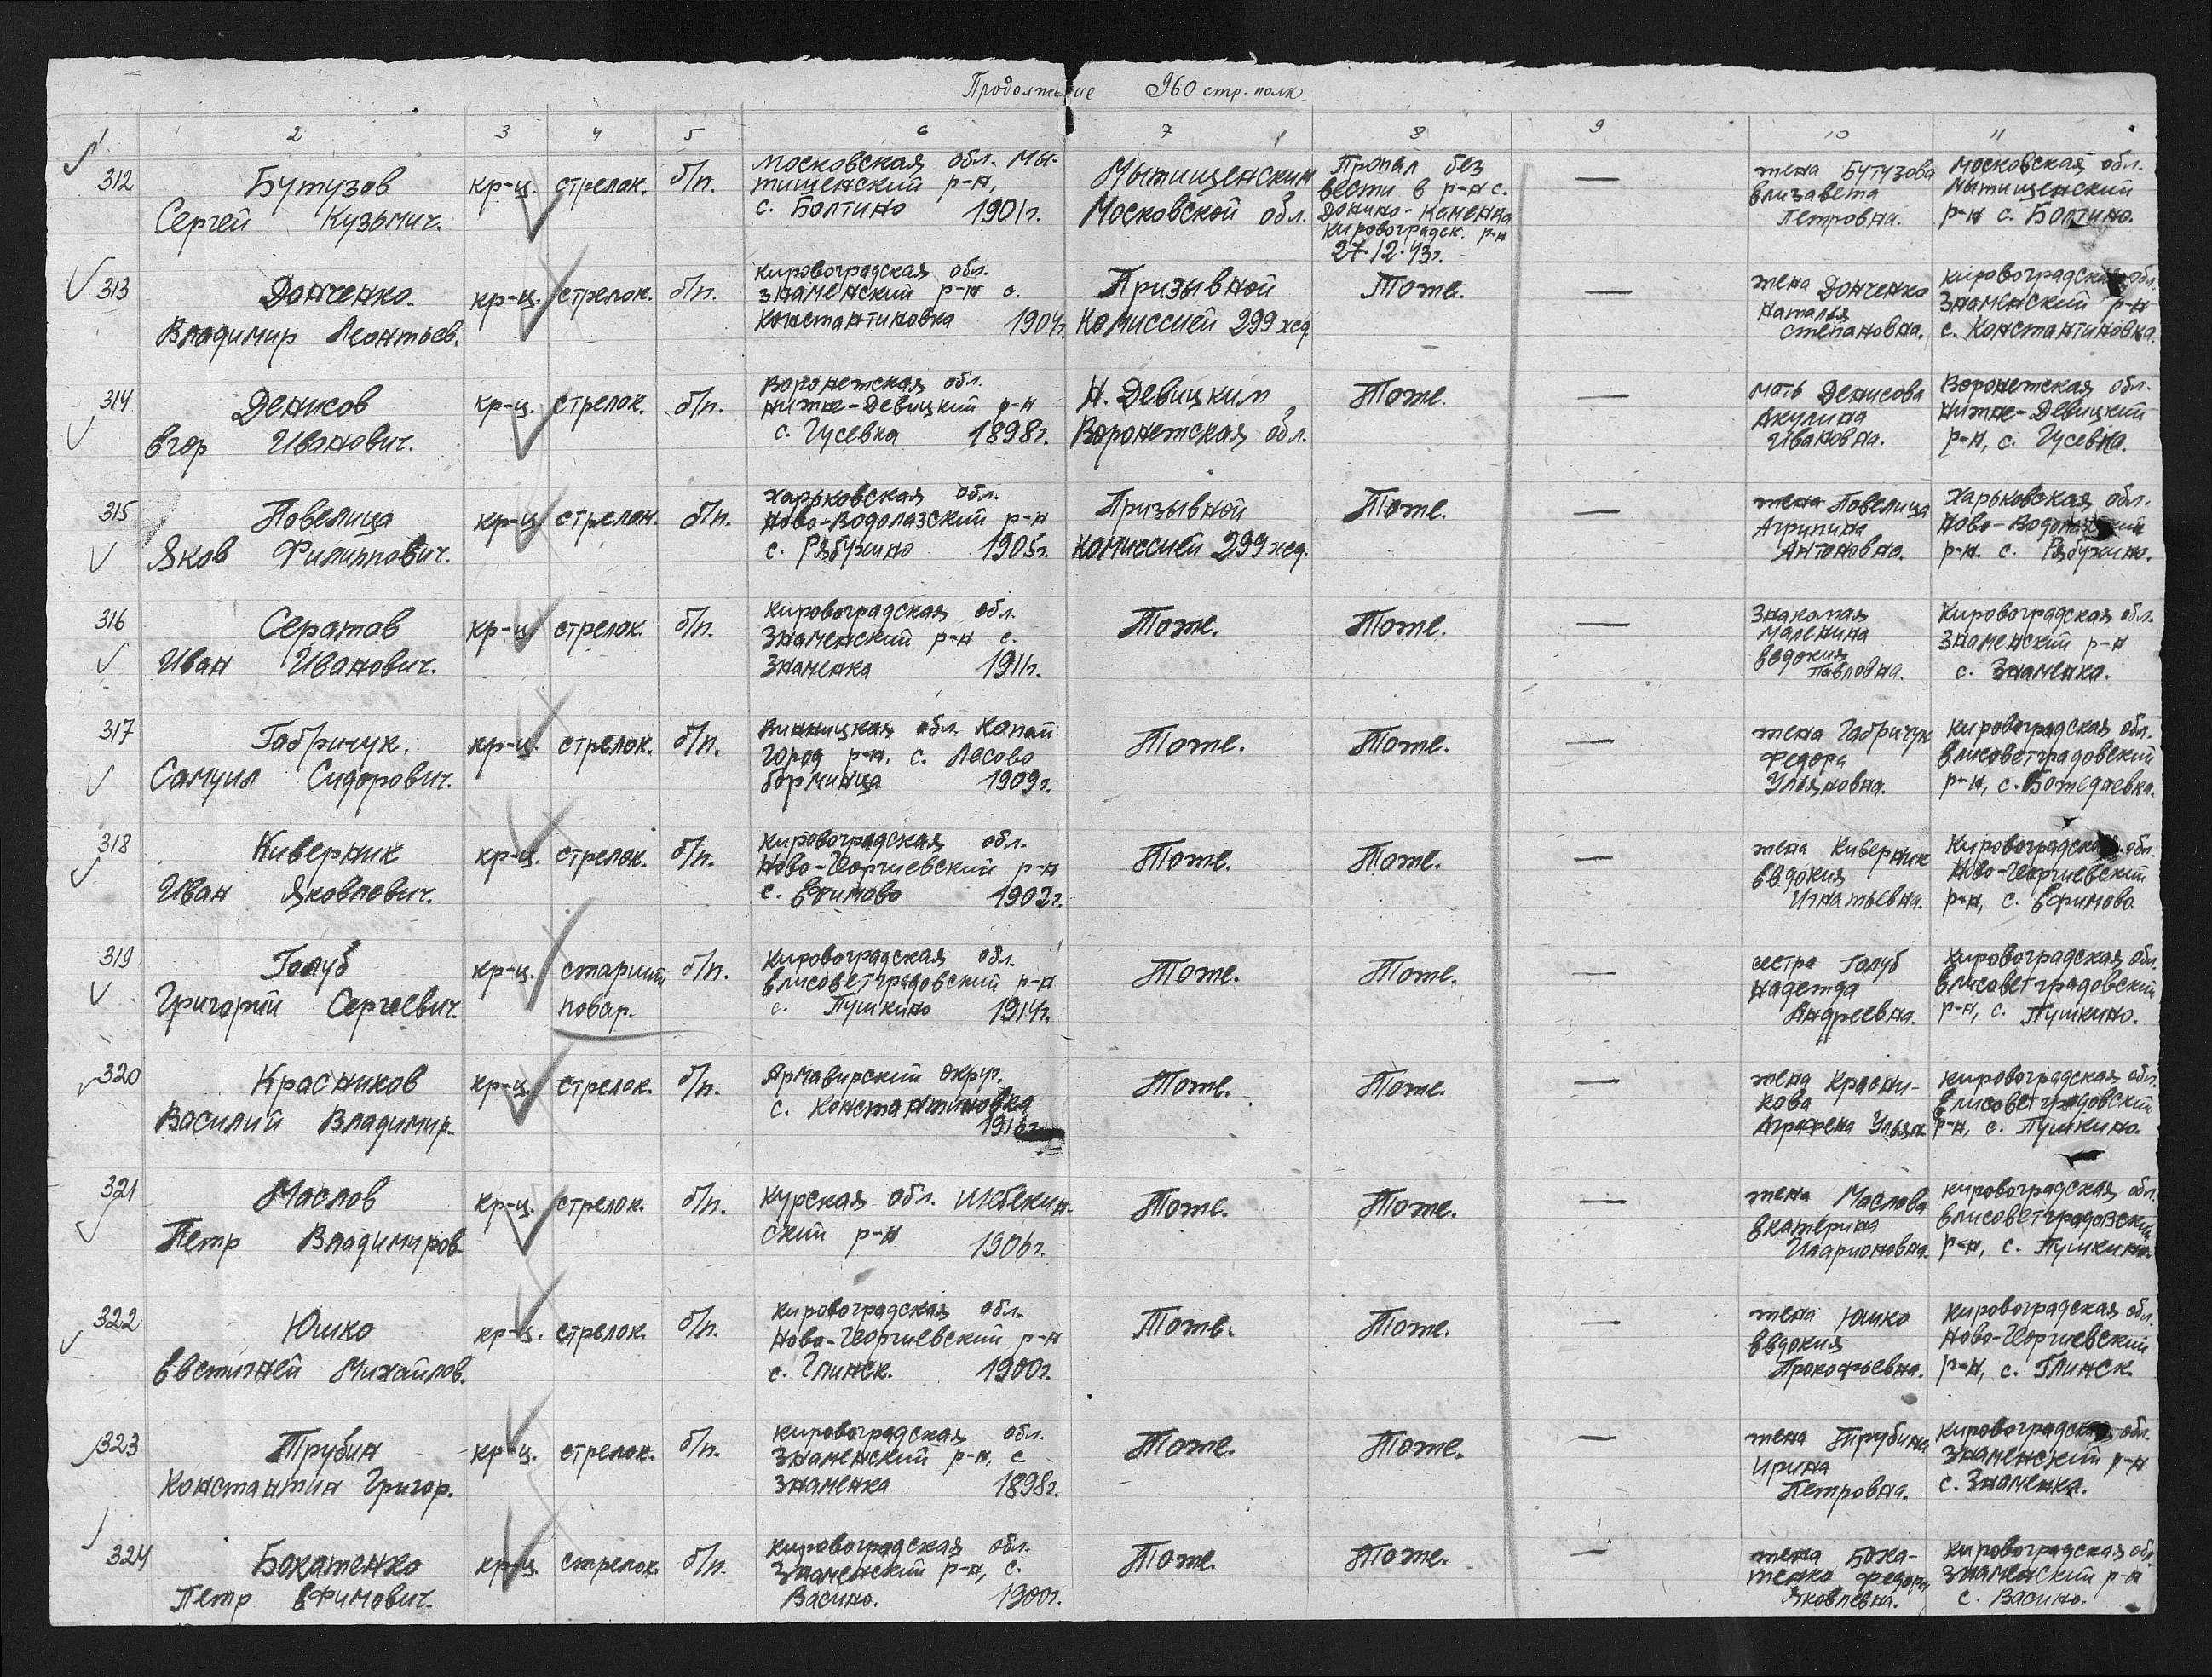 Продолжение 960 стр. полк
1 2 3 4 5 6 7 8 9 10 11
312 Бутузов Сергей Кузьмич. кр-ц. стрелок. б/п. Московская обл. Мы-
тищенский р-н,
с. Болтино 1901г.
Мытищенским
Московской обл.
Пропал без
вести в р-н с.
Донино-Каменка
Кировоградск. р-н
27.12.43г.
—
жена Бутузова
Елизавета
Петровна.
Московская обл.
Мытищенский
р-н с. Болтино.
313 Донченко.
Владимир Леонтьев.
кр-ц. стрелок. б/п.
Кировоградская обл.
Знаменский р-н с.
Константиновка 1904г.
Призывной
Комиссией 299 жсд.
Тоже.
—
жена Донченко
Наталья
Степановна.
Кировоградская обл.
Знаменский р-н
с. Константиновка.
314 Денисов
Егор Иванович.
кр-ц. стрелок. б/п.
Воронежская обл.
Нижне-Девицкий р-н
с. Гусевка 1898г.
Н. Девицким
Воронежская обл.
Тоже.
—
мать Денисова
Акулина
Ивановна.
Воронежская обл.
Нижне-Девицкий
р-н, с. Гусевка.
315 Повелица
Яков Филиппович.
кр-ц. стрелок. б/п.
Харьковская обл.
Ново-Водолазский р-н
с. Рябухино 1905г.
Призывной
комиссией 299 жсд.
Тоже.
—
жена Повелица
Агрипина
Антоновна.
Харьковская обл.
Ново-Водолазский
р-н. с. Рябухино.
316 Серотов
Иван Иванович.
кр-ц. стрелок. б/п.
Кировоградская обл.
Знаменский р-н с.
Знаменка 1911г.
Тоже.
Тоже.
—
Знакомая
Маленина
Евдокия
Павловна.
Кировоградская обл.
Знаменский р-н
с. Знаменка.
317 Габричук.
Самуил Сидорович.
кр-ц. стрелок. б/п.
Винницкая обл. Копай
город р-н, с. Лесово
борминца 1909г.
Тоже.
Тоже.
—
жена Габричук
Федора
Ульяновна.
Кировоградская обл.
Елисоветградовский
р-н, с. Божедаевка.
318 Киверник
Иван Яковлевич.
кр-ц. стрелок. б/п.
Кировоградская обл.
Ново-Георгиевский р-н
с. Ефимово 1902г.
Тоже.
Тоже.
—
жена Киверник
Евдокия
Игнатьевна.
Кировоградская обл.
Ново-Георгиевский
р-н, с. Ефимово
319 Голуб
Григорий Сергеевич.
кр-ц. старший
повар.
б/п.
Кировоградская обл.
Елисоветградовский р-н
с. Пушкино 1914г.
Тоже.
Тоже.
—
сестра Голуб
Надежда
Андреевна.
Кировоградская обл.
Елисоветградовский
р-н, с. Пушкино.
320 Красников
Василий Владимир.
кр-ц. стрелок. б/п.
Армавирский округ.
с. Константиновка
1916г.
Тоже.
Тоже.
—
жена Красни-
кова
Аграфена Ульян.
Кировоградская обл.
Елисоветградовский
р-н, с. Пушкино.
321 Маслов
Петр Владимиров.
кр-ц. стрелок. б/п.
Курская обл. Шебекин-
ский р-н 1906г.
Тоже.
Тоже.
—
жена Маслова
Екатерина
Иларионовна.
Кировоградская обл.
Елисоветградовский
р-н, с. Пушкино.
322 Юшко
Евстигней Михайлов.
кр-ц. стрелок. б/п.
Кировоградская обл.
Ново-Георгиевский р-н
с. Глинск. 1900г.
Тоже.
Тоже.
—
жена Юшко
Евдокия
Прокофьевна.
Кировоградская обл.
Ново-Георгиевский
р-н, с. Глинск.
323 Трубин
Константин Григор.
кр-ц. стрелок. б/п.
Кировоградская обл.
Знаменский р-н, с
Знаменка 1898г.
Тоже.
Тоже.
—
жена Трубина
Ирина
Петровна.
Кировоградская обл.
Знаменский р-н
с. Знаменка.
324 Бокатенко
Петр Ефимович.
кр-ц. стрелок. б/п.
Кировоградская обл.
Знаменский р-н, с.
Васино. 1900г.
Тоже.
Тоже.
—
жена Бока-
тенко Федора
Яковлевна.
Кировоградская обл.
Знаменский р-н
с. Васино.